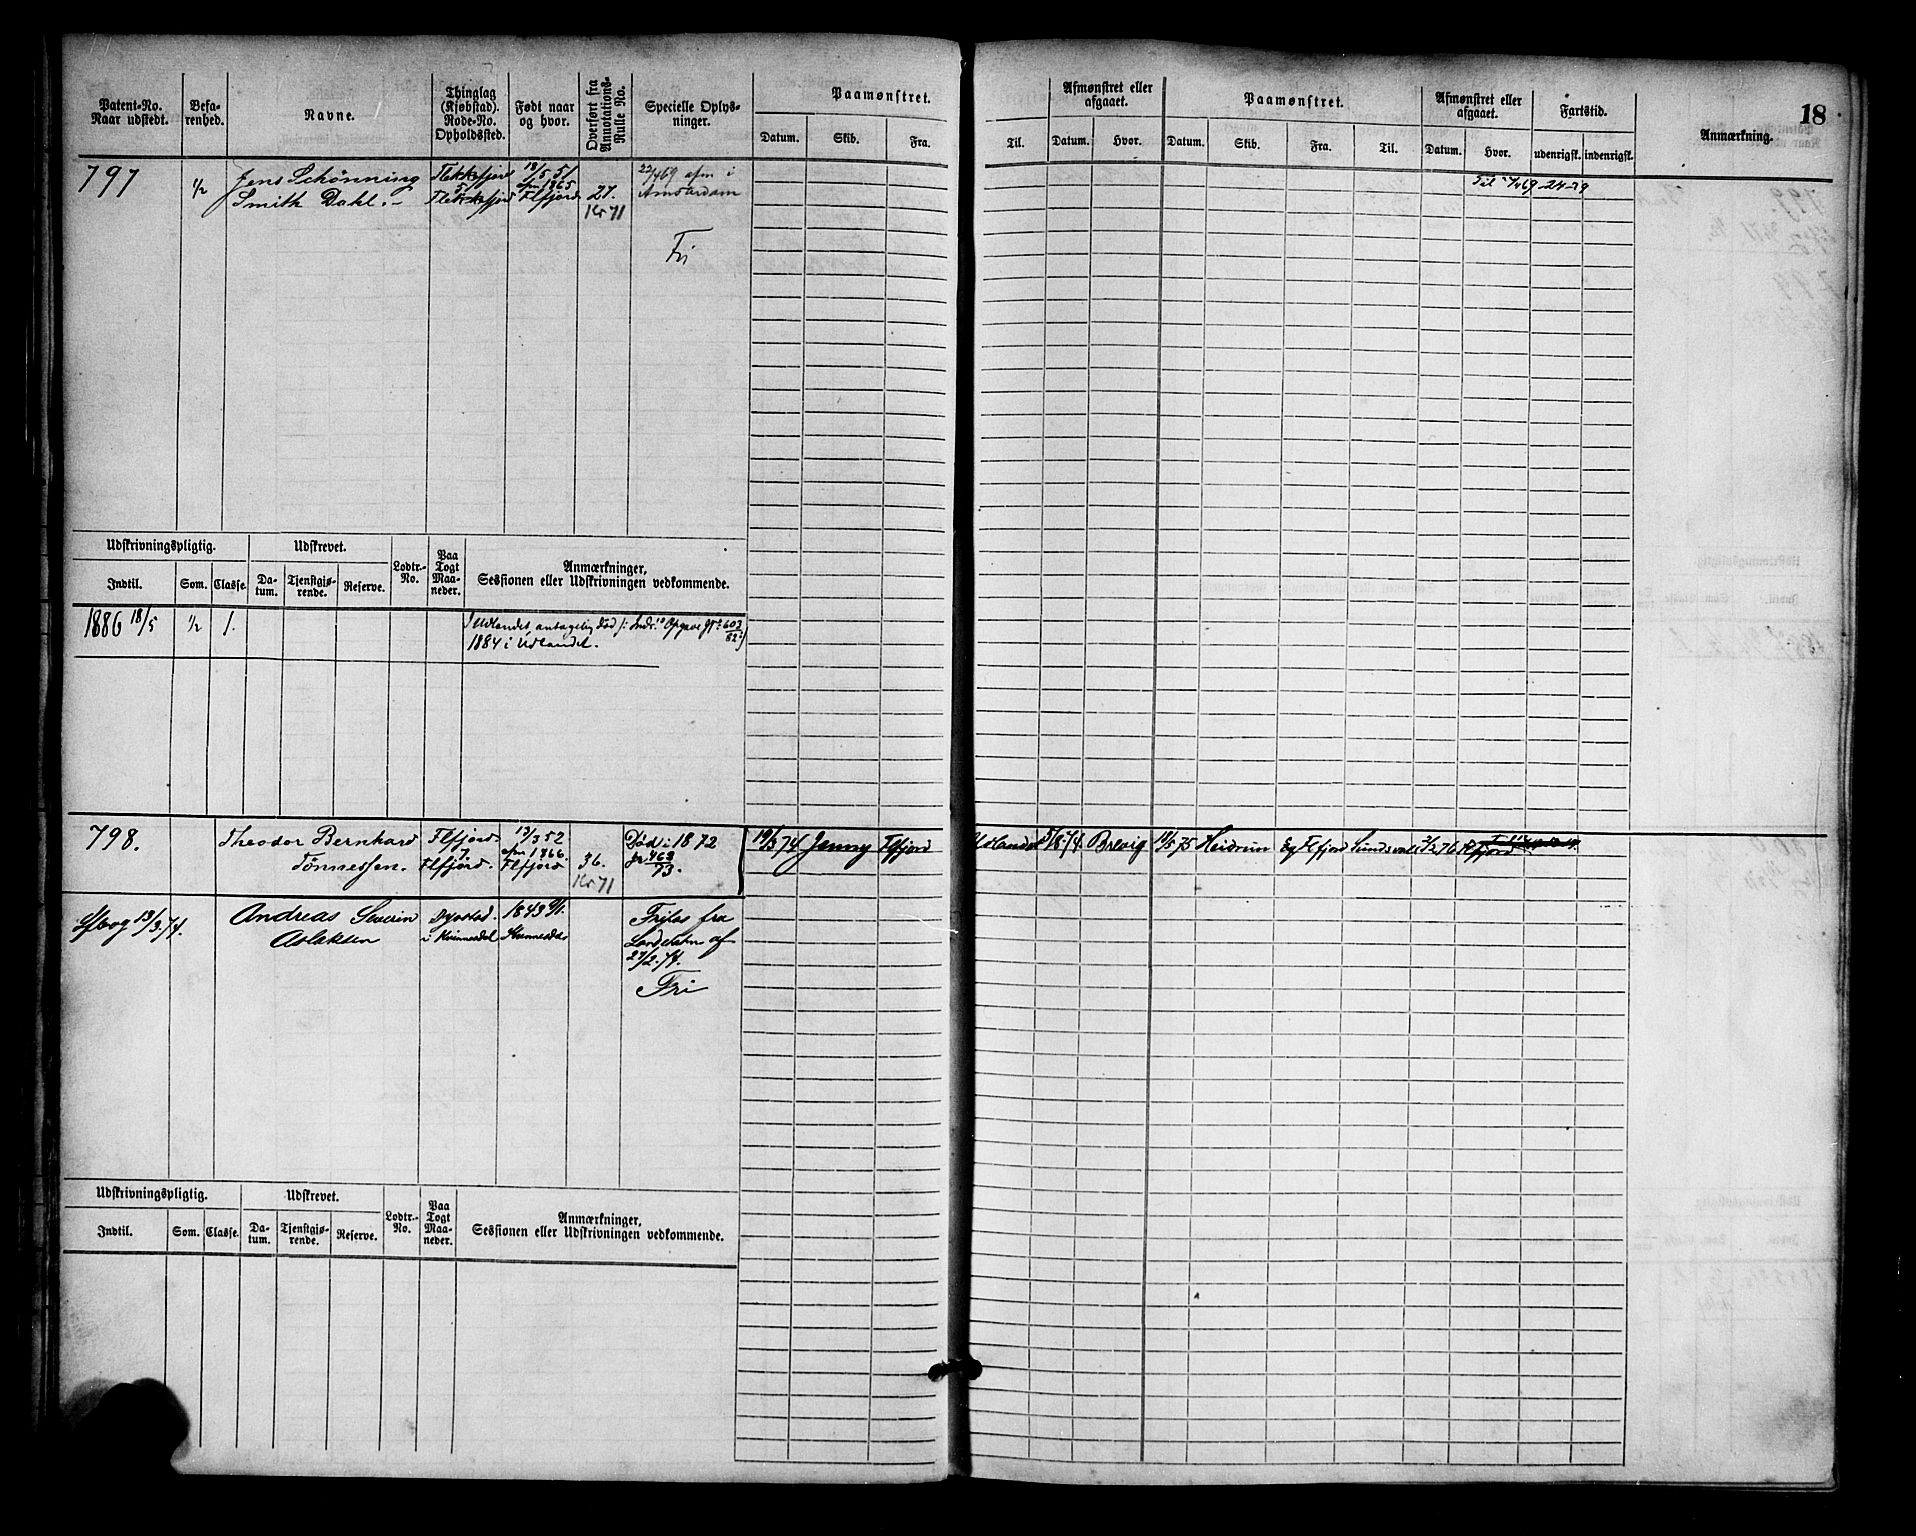 18
Patent-No. Naar udstedt. Befarenhed. Navne. Thinglag (Kjøbstad). Rode-No. Opholdssted. Født naar og hvor. Overført fra Annotations-Rulle No. Specielle Oplysninger. Paamønstret. Datum. Skib. Fra. Til. Afmønstret eller afgaaet. Datum. Hvor. Paamønstret. Datum. Skib. Fra. Til. Afmønstret eller afgaaet. Datum. Hvor. Fartstid. udenrigsk. indenrigsk. Anmærkning.
797 1/2 Jens Schönning Flekkefjord 18/5 51 22/4 69 afm i
Smith Dahl.- 51 Flekkefjord afm 1865 Flfjord 27. Amsterdam
Kr 71
Fri
Udskrivningspligtig. Udskrevet. Lodtr.-No. Paa Togt Maaneder. Anmærkninger, Sessionen eller Udskrivningen vedkommende.
Indtil. Som. Classe. Datum. Tjenstgjørende. Reserve.
1886 18/5 1/2 1. Udlandet antagelig død Opgave 603/82
1884 i Udlandet.
798. Theodor Bernhard Flfjord 13/3 52 Død i 1872 19/3 74 Jenny Flfjord Udlandet 5/8 74 Brevig 11/5 75 Heidrun Eg Flfjord Sundsvall 3/2 76 Flfjord
Tønnessen. Flfjord. afm 1866. Flfjord 36. 463/73.
Kr 71
13/3 74. Andreas Severin 1843 Friles fra
Aslaksen i Kvinesdal Kvinesdal af
27/2 74.
Fri
Udskrivningspligtig. Udskrevet. Lodtr.-No. Paa Togt Maaneder. Anmærkninger, Sessionen eller Udskrivningen vedkommende.
Indtil. Som. Classe. Datum. Tjenstgjørende. Reserve.